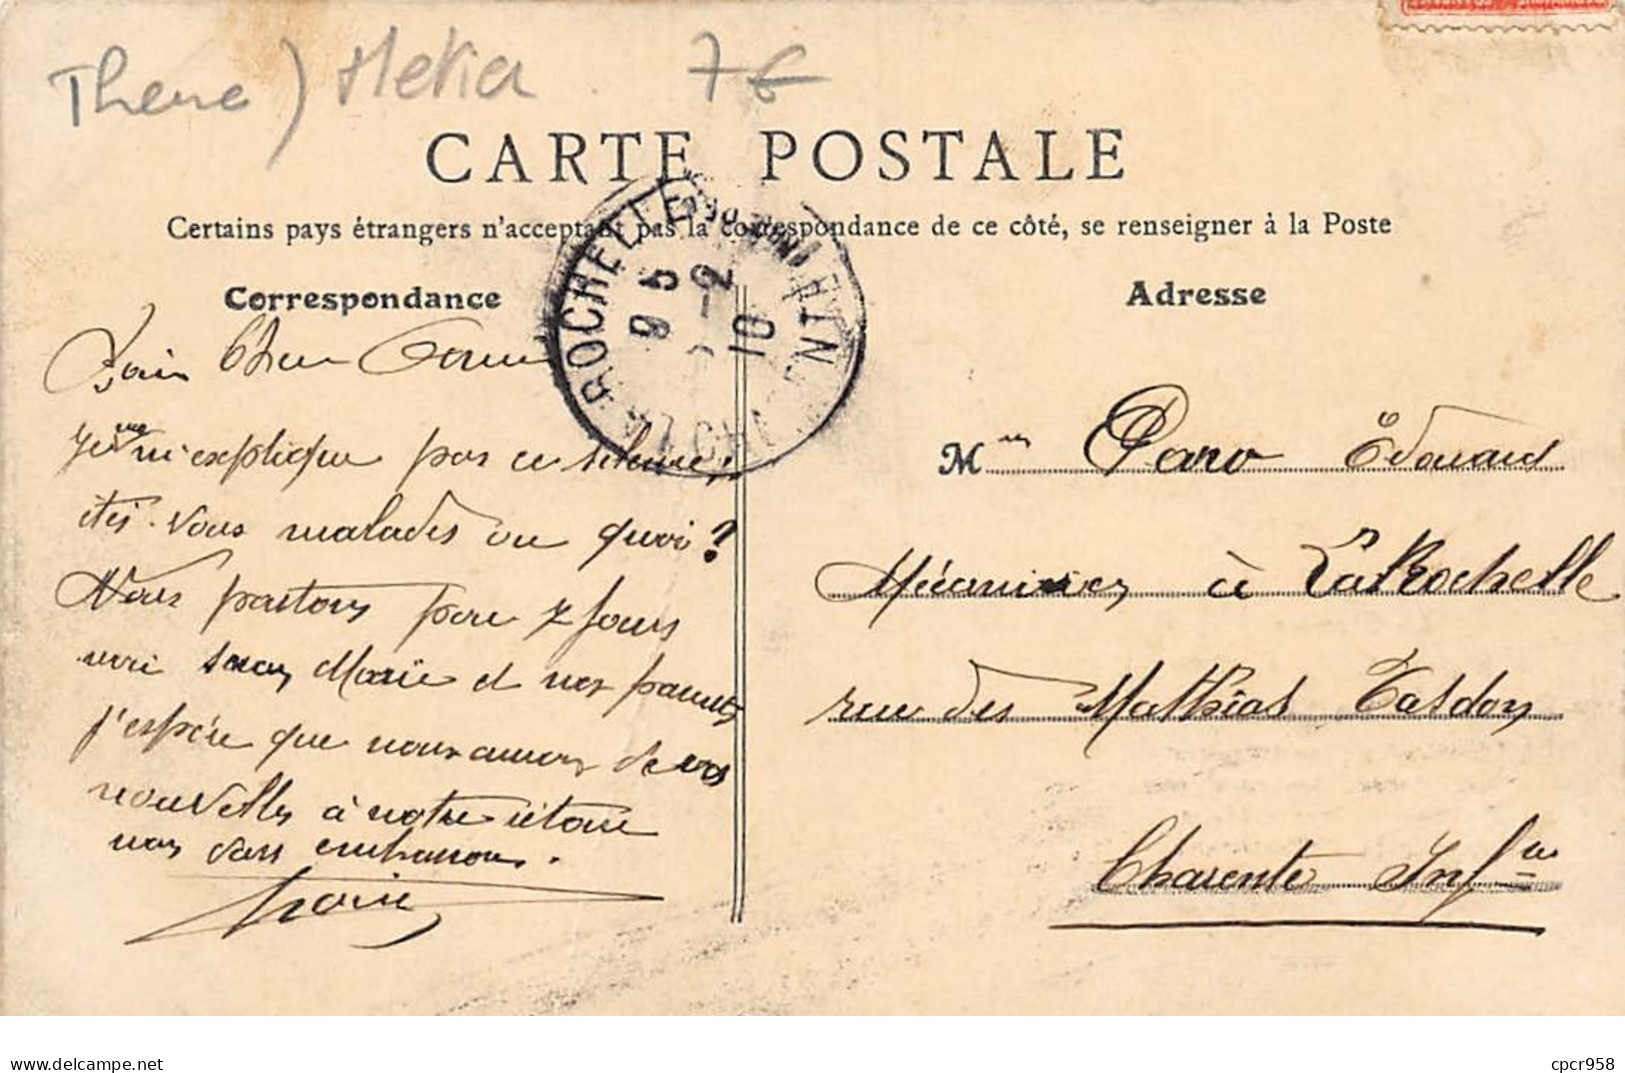 Theme) Metier 7€
CARTE POSTALE
Certains pays étrangers n'acceptant pas la correspondance de ce côté, se renseigner à la Poste
Correspondance
Adresse
LA ROCHELLE
9 5
2 - 2
10
expliquer pas ce silence,
êtes-vous malades ou quoi ?
Nous partons pour 7 Jours
Marie et nos parents
j'espère que nous aurons de vos
nouvelles à notre retour
embrassons.
M Paro Edouard
Mécanicien à La Rochelle
rue des Mathias Tasdon
Charente Infre
delcampe.net
cpcr958